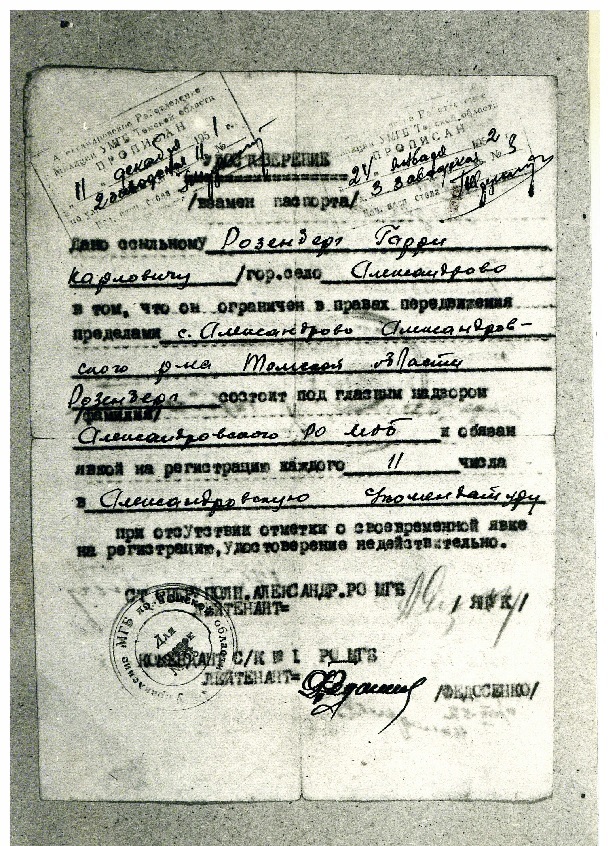 Александровское Разделение
Милиции УМГБ Томской области
ПРОПИСАН
11 декабря 1951 г.
УМГБ Томской области
ПРОПИСАН
24 января 1952
УДОСТОВЕРЕНИЕ
/взамен паспорта/
Дано ссыльному Розенберг Гарри
Карловичу /гор.село Александрово
в том, что он ограничен в правах передвижения
пределами с. Александрово Александров-
ского р-на Томской области
Розенберг состоит под гласным надзором
/фамилия/
Александровского РО МГБ и обязан
явкой на регистрацию каждого 11 числа
в Александровскую комендатуру
при отсутствии отметки о своевременной явке
на регистрацию, удостоверение недействительно.
СТ. ОПЕРУПОЛН. АЛЕКСАНДР. РО МГБ
ЛЕЙТЕНАНТ=
Управление МГБ по Томской области
Для
КОМЕНДАНТ С/К № 1 РО МГБ
ЛЕЙТЕНАНТ= /ФЕДОСЕНКО/